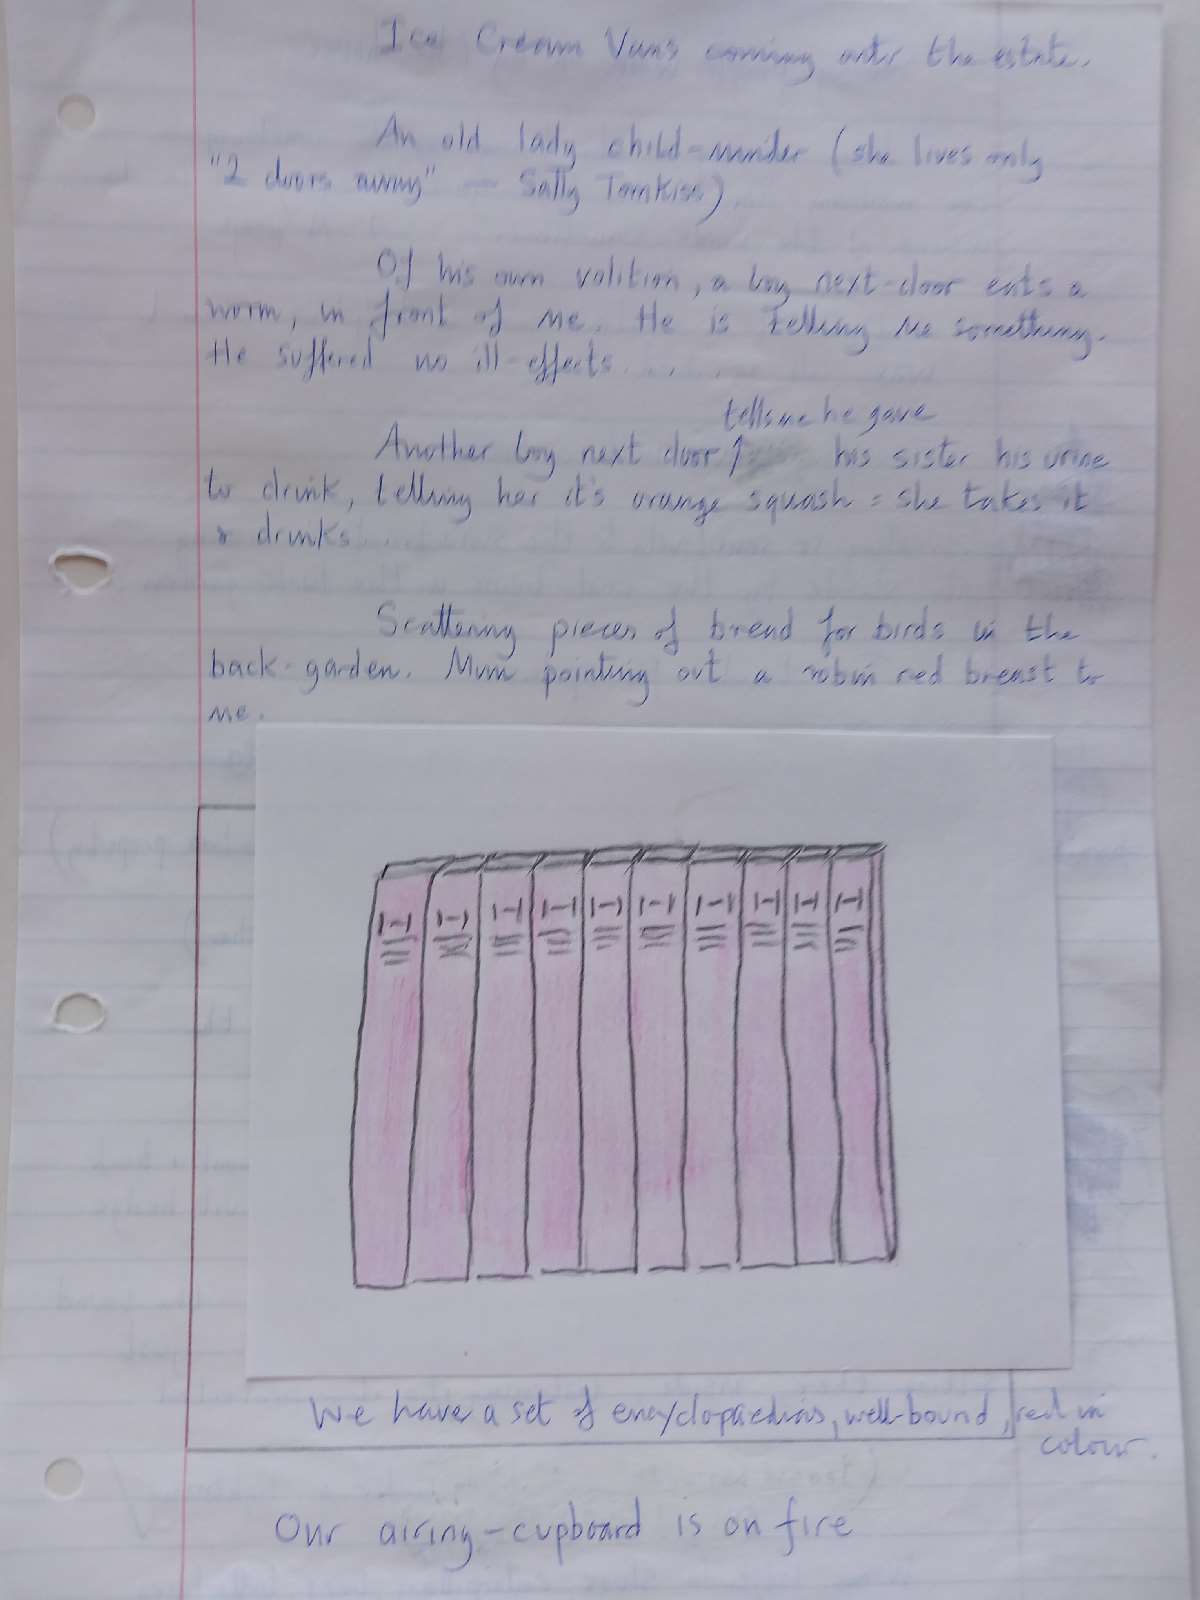 Ice Cream Vans coming onto the estate.
An old lady child-minder (she lives only
"2 doors away" — Sally Tomkiss)
Of his own volition, a boy next-door eats a
worm, in front of me. He is telling me something.
He suffered no ill-effects....
tells me he gave
Another boy next door his sister his urine
to drink, telling her it's orange squash = she takes it
& drinks
Scattering pieces of bread for birds in the
back-garden. Mum pointing out a robin red breast to
me.
We have a set of encyclopaedias, well-bound, red in
colour.
Our airing-cupboard is on fire